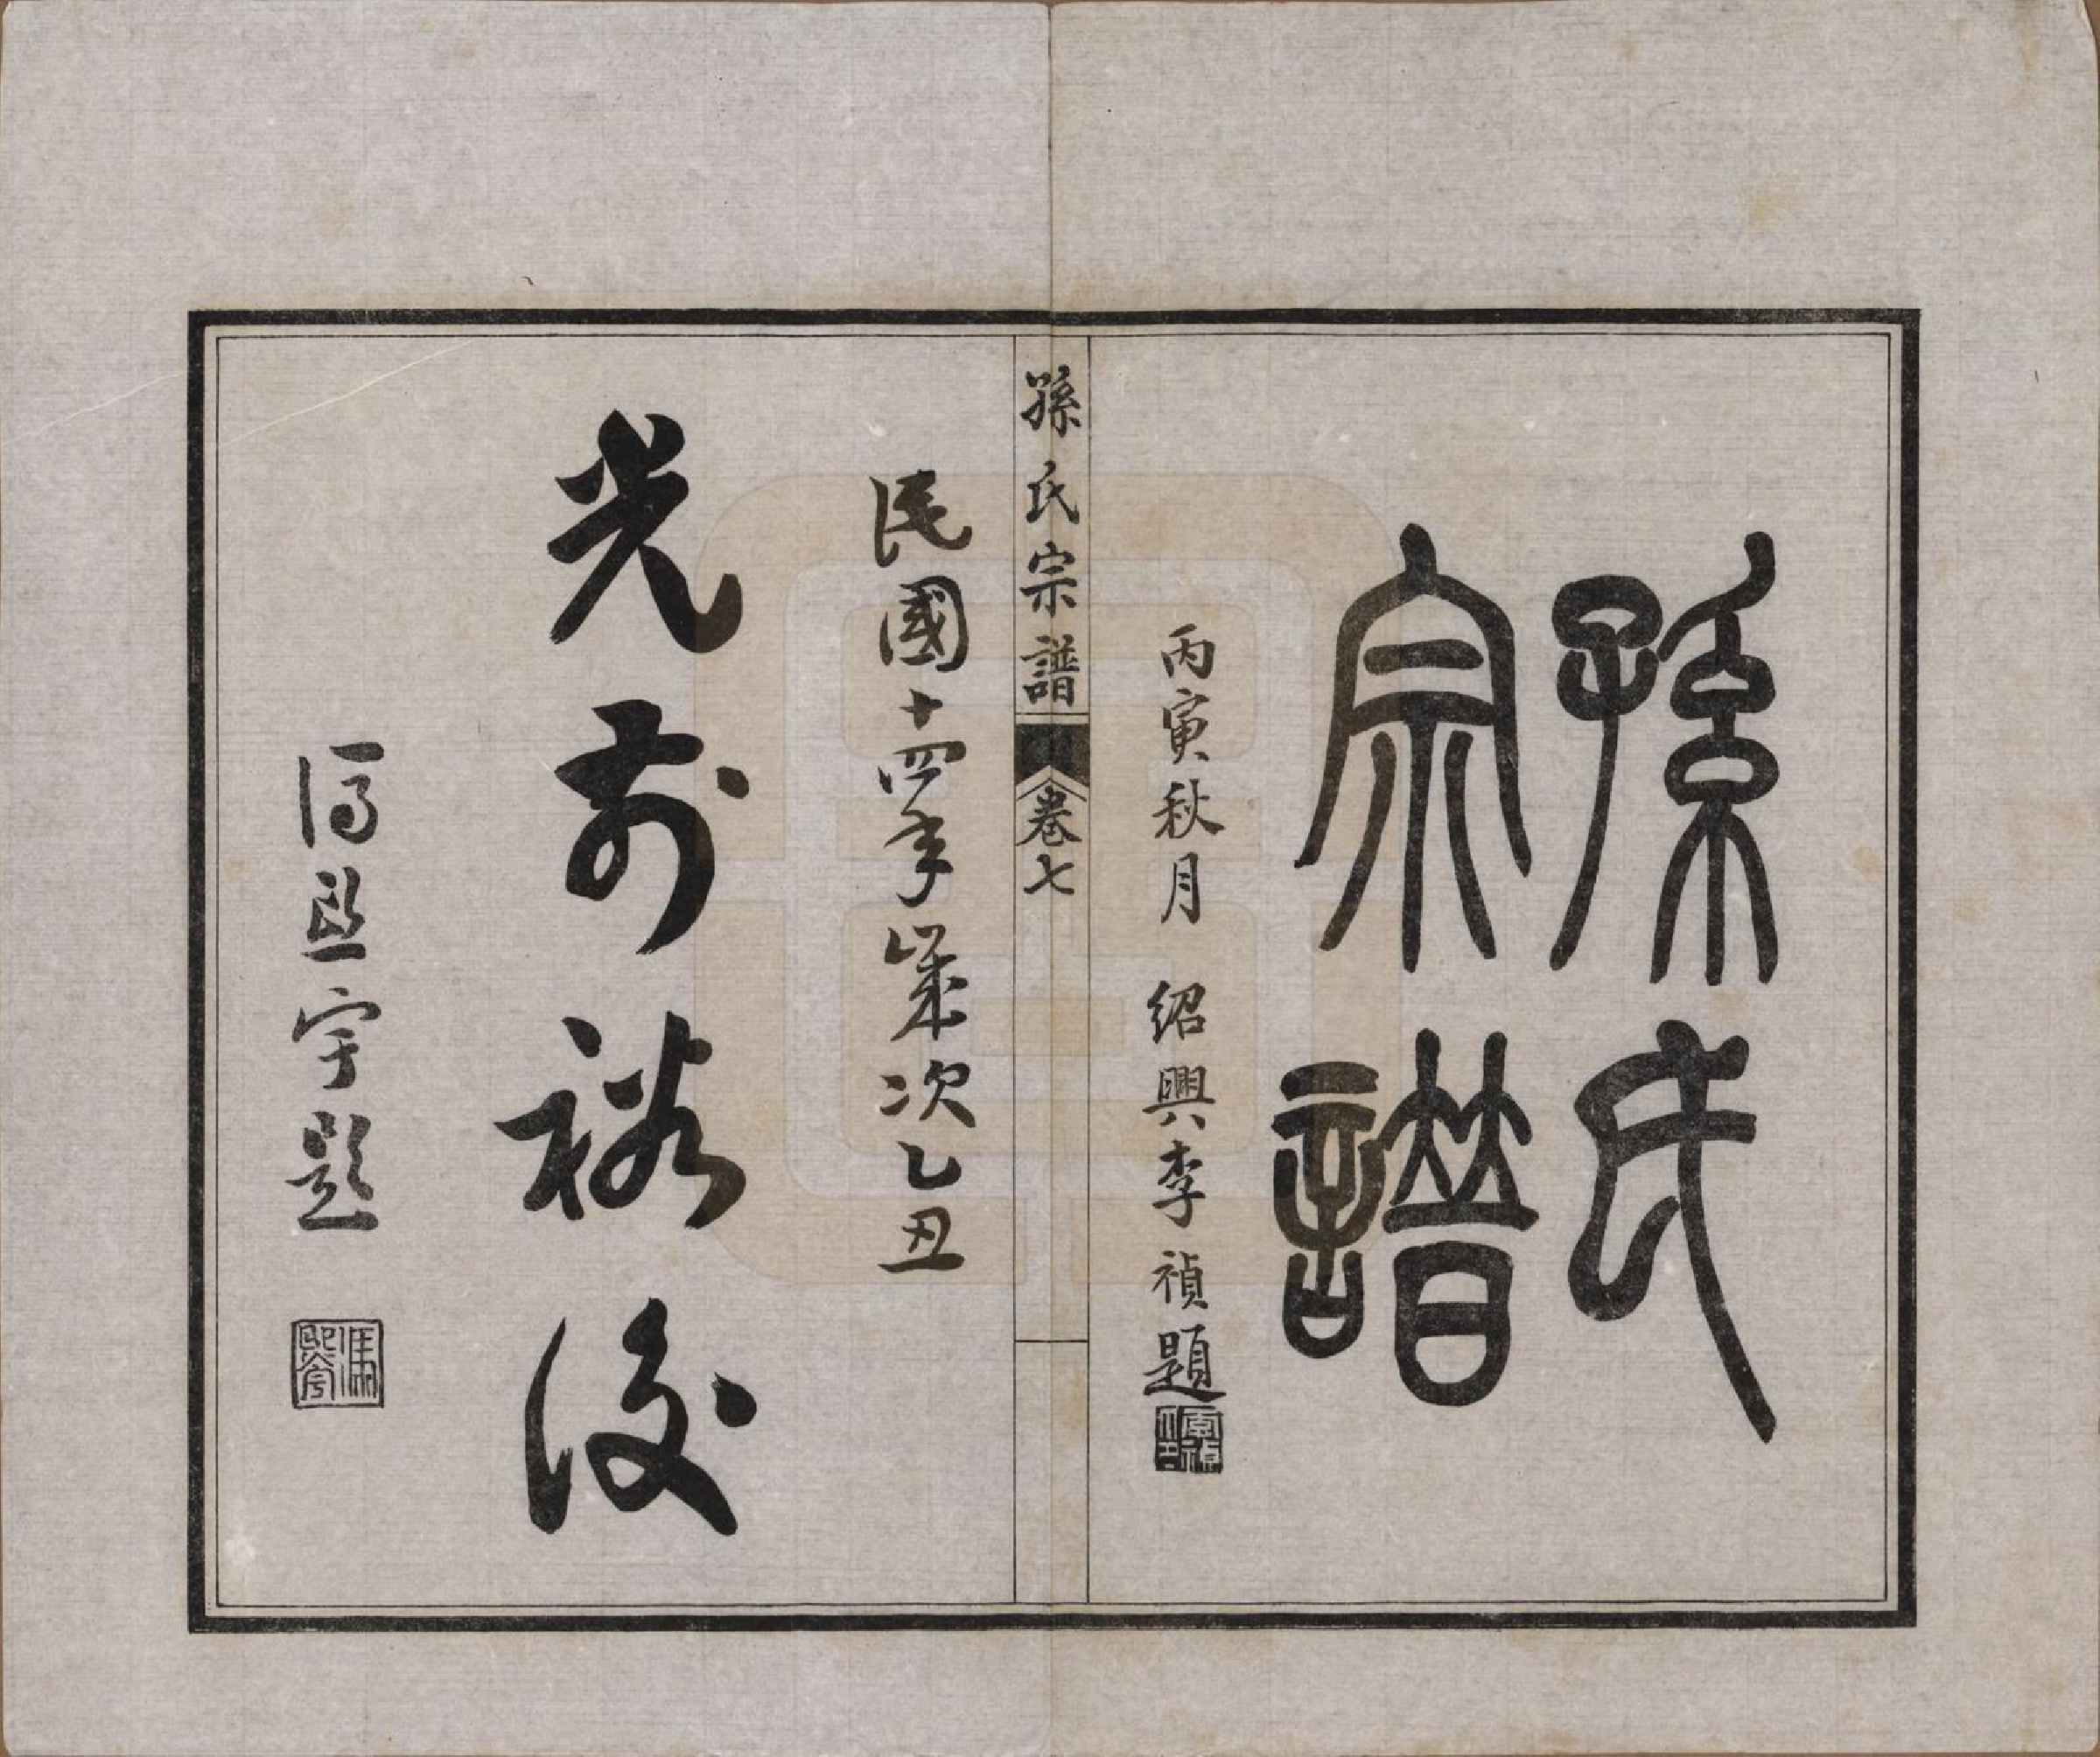 孫氏
宗譜
丙寅秋月 紹興李禎題
孫氏宗譜 卷七
民國十四年歲次乙丑
光前裕後
馮熙宇題
馮熙宇